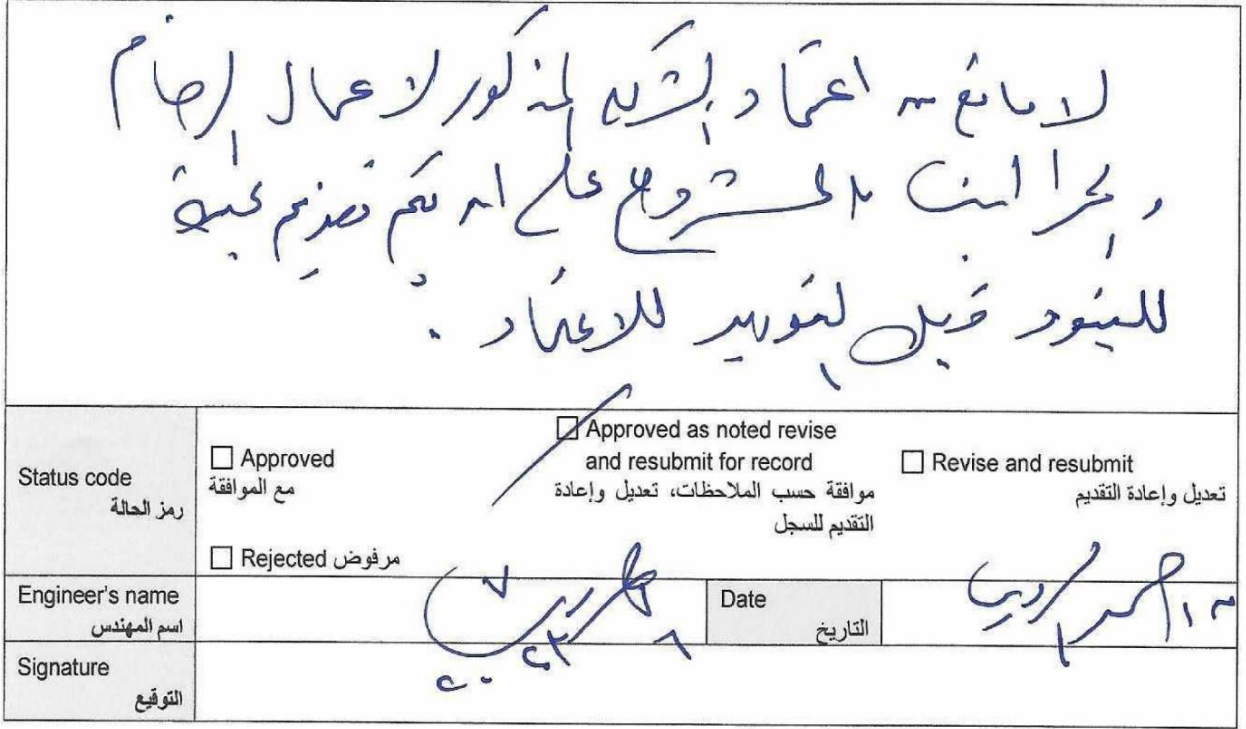 لا مانع من اعتماد الشركه المذكور لاعمال الرخام
و الجرانيت بالمشروع على ان يتم تقديم عينة
للبنود قبل التوريد للاعتماد .
Status code
رمز الحالة
☐ Approved
مع الموافقة
☐ Approved as noted revise
and resubmit for record
موافقة حسب الملاحظات، تعديل وإعادة
التقديم للسجل
☐ Revise and resubmit
تعديل وإعادة التقديم
☐ Rejected مرفوض
Engineer's name
اسم المهندس
Date
التاريخ
م / احمد
Signature
التوقيع